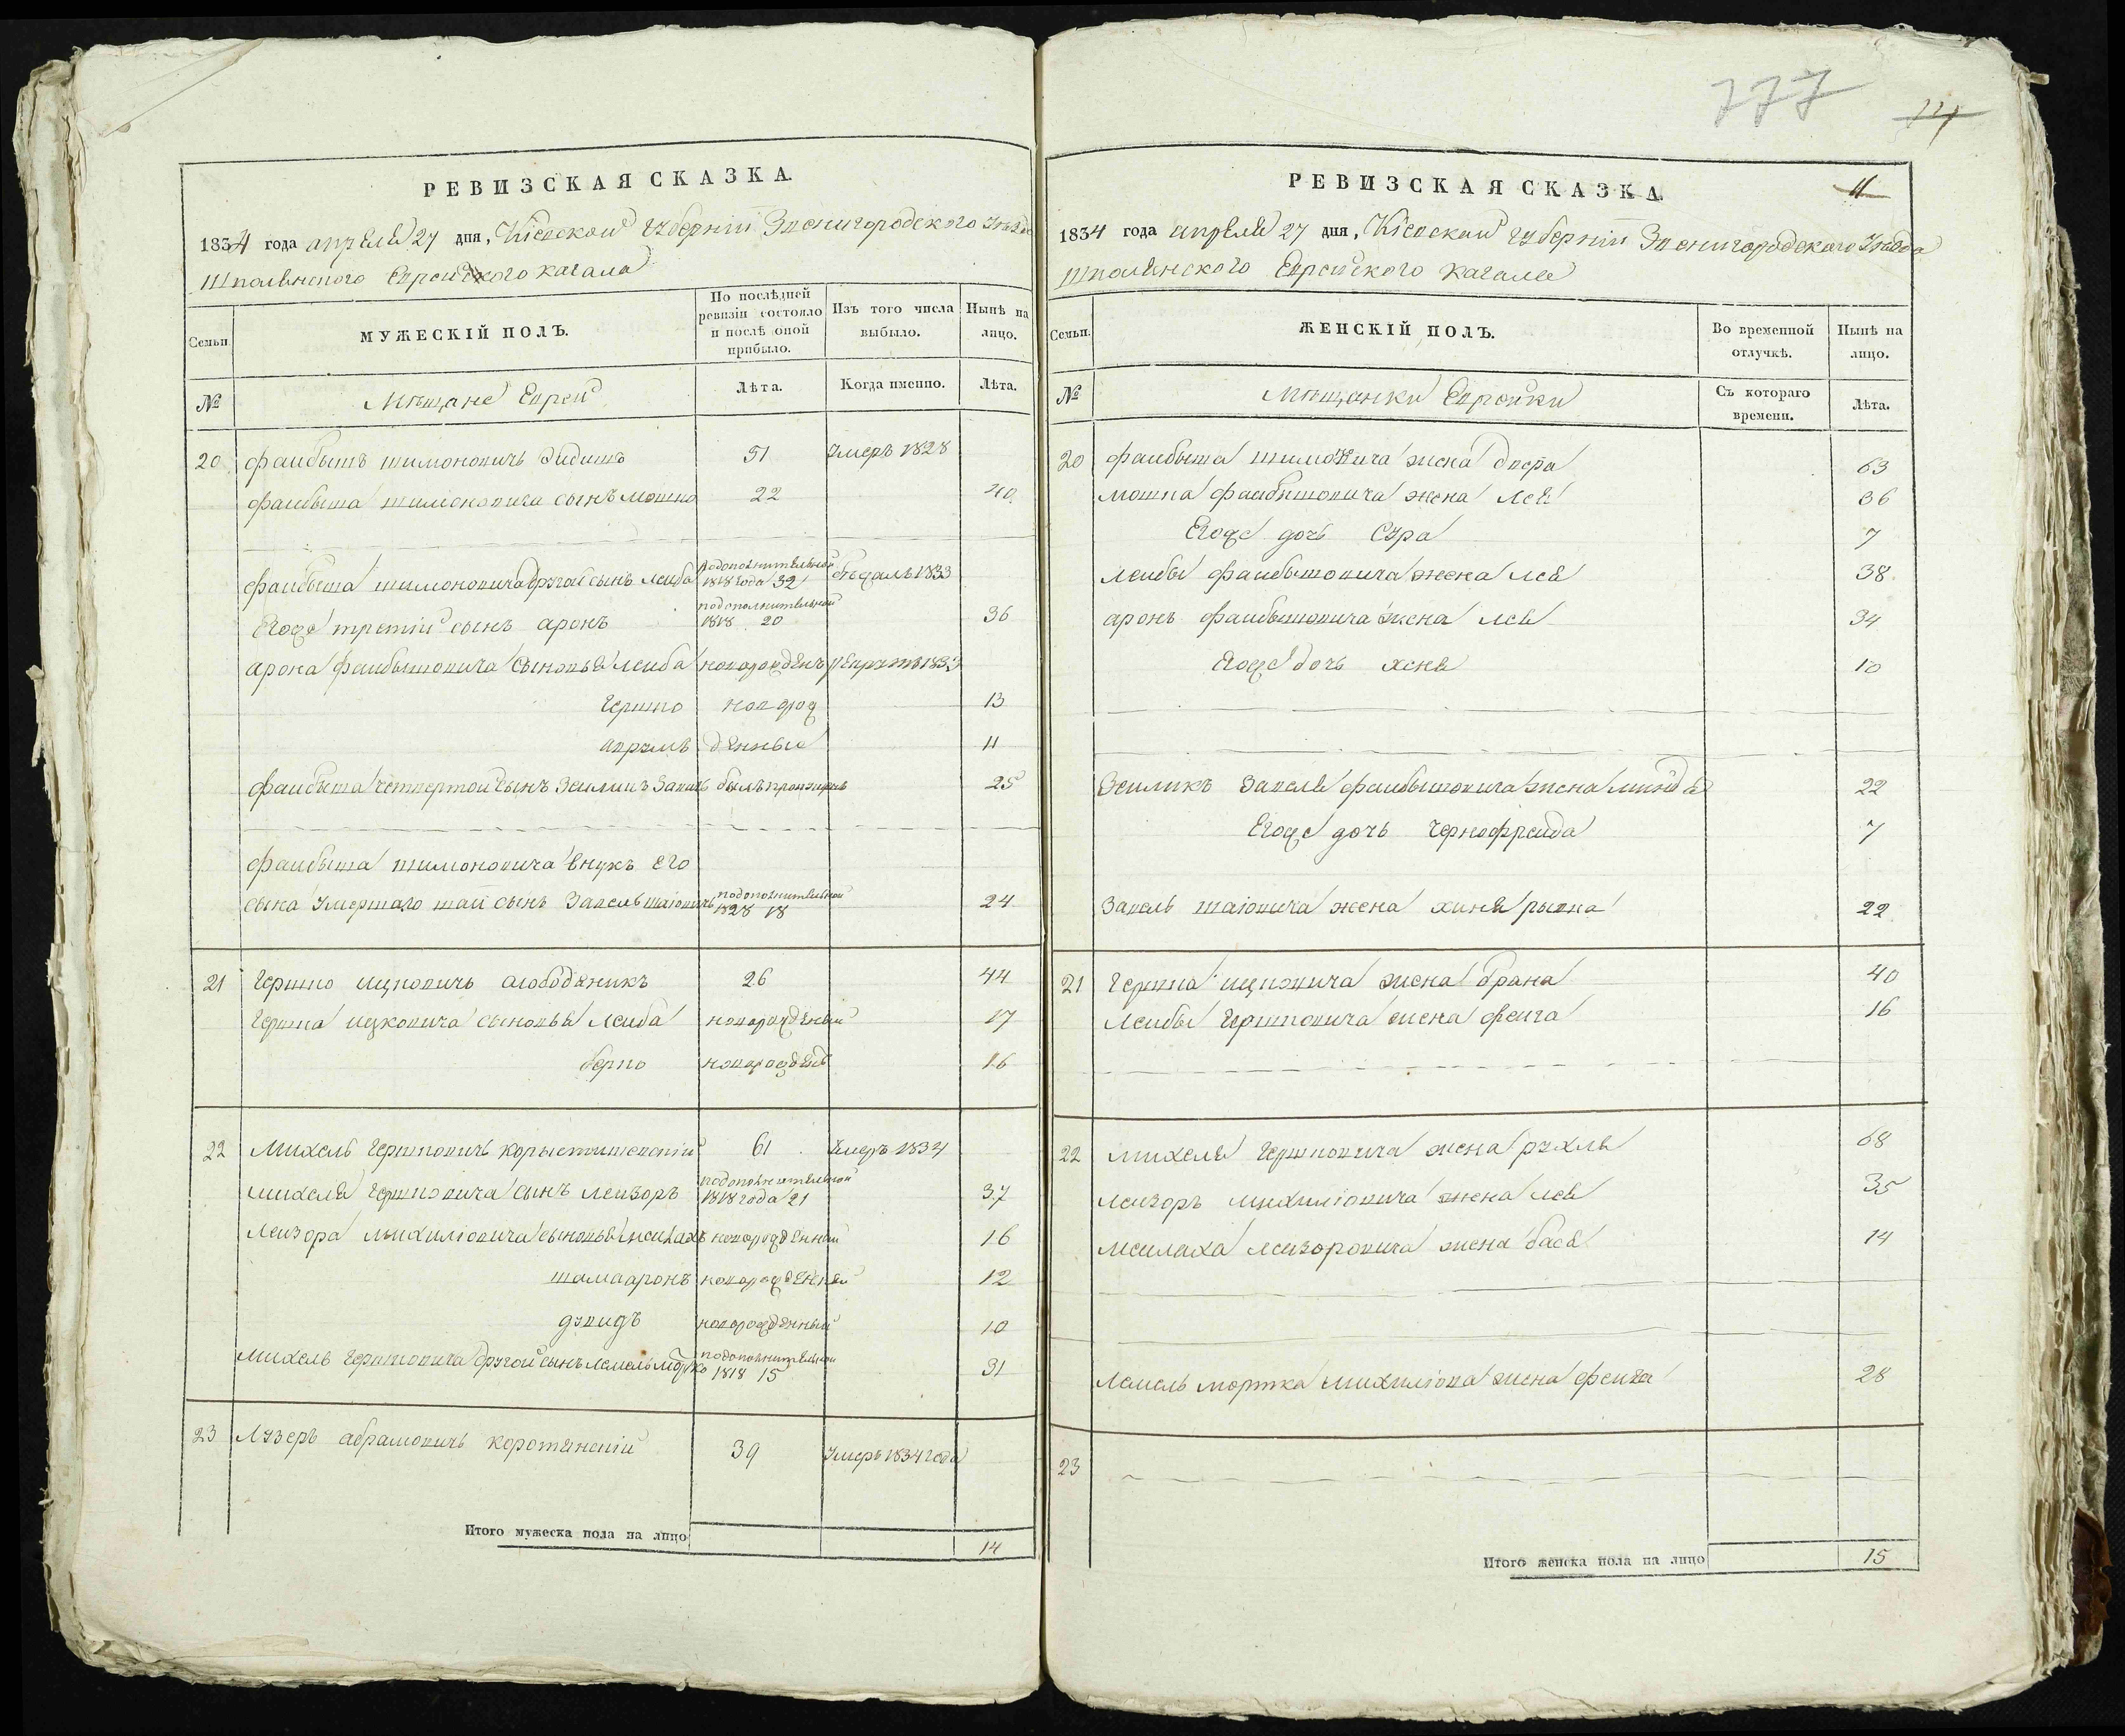 777
11
РЕВИЗСКАЯ СКАЗКА.
1834 года апреля 27 дня, Кіевской губерніи Звенигородского Уезда
Шполянского Еврейского кагала
Семьи.
МУЖЕСКІЙ ПОЛЪ.
По послѣдней ревизіи состояло и послѣ оной прибыло.
Изъ того числа выбыло.
Нынѣ на лицо.
№
Мѣщане Евреи
Лѣта.
Когда именно.
Лѣта.
20 файбышъ шимоновичъ 51 Умеръ 1828
файбыша шимоновича сынъ мошко 22 40
файбыша шимоновича другой сынъ лейба подополнительной 1818 года 32 1833
Егоже третій сынъ аронъ подополнительной 1818 20 36
арона файбышовича сыновья лейба
гершко новорож 13
аврумъ денные 11
файбыша четвертой сынъ Зейликъ былъ 25
файбыша шимоновича внукъ его
сына Умершаго шаи сынъ Завель шаіовичъ подополнительной 1828 18 24
21 гершко ицковичъ слободяникъ 26 44
гершка ицковича сыновья лейба новорожденный 17
берко 16
22 Михель гершковичъ коростишевскій 61 Умеръ 1834
михеля гершковича сынъ лейзоръ подополнительной 1818 года 21 37
лейзора михиліовича сыновья мейлахъ новорожденный 16
шамааронъ новорожденный 12
дувидъ новорожденный 10
михель гершковича другой сынъ лемель мортко подополнительной 1818 15 31
23 Лузеръ абрамовичъ коротянскій 39 Умеръ 1834 года
Итого мужеска пола на лицо 14
РЕВИЗСКАЯ СКАЗКА.
1834 года апреля 27 дня, Кіевской губерніи Звенигородского Уезда
Шполянского Еврейского кагала
Семьи.
ЖЕНСКІЙ ПОЛЪ.
Во временной отлучкѣ.
Нынѣ на лицо.
№
Мѣщанки Еврейки
Съ котораго времени.
Лѣта.
20 файбыша шимовича жена двера 63
мошка файбышовича жена лея 36
Егоже дочь Сура 7
лейбы файбышовича жена лея 38
аронъ файбышовича жена лея 34
Егоже дочь хеня 10
Зейликъ Завеля файбышовича жена миндя 22
Егоже дочь чернофрейда 7
Завель шаіовича жена хиня рывка 22
21 гершка ицковича жена брана 40
лейбы гершковича жена фейга 16
22 михеля гершковича жена рухля 68
лейзоръ михиліовича жена лея 35
мейлаха лейзоровича жена бася 14
лемель мортка михиліова жена фейга 28
23
Итого женска пола на лицо 15